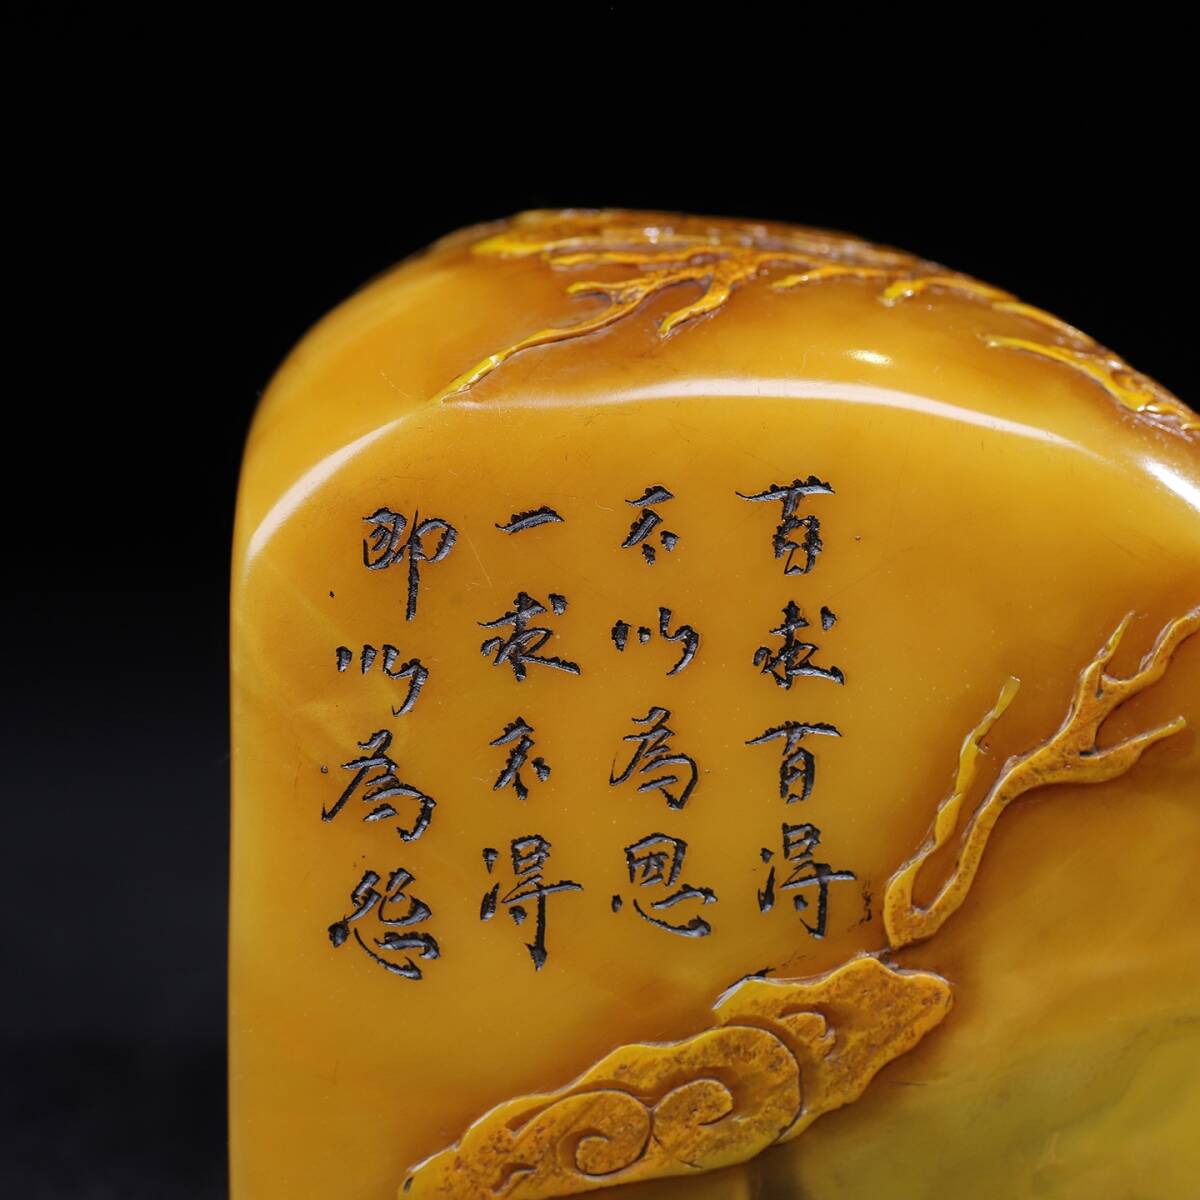 百求百得
不以為恩
一求不得
即以為怨